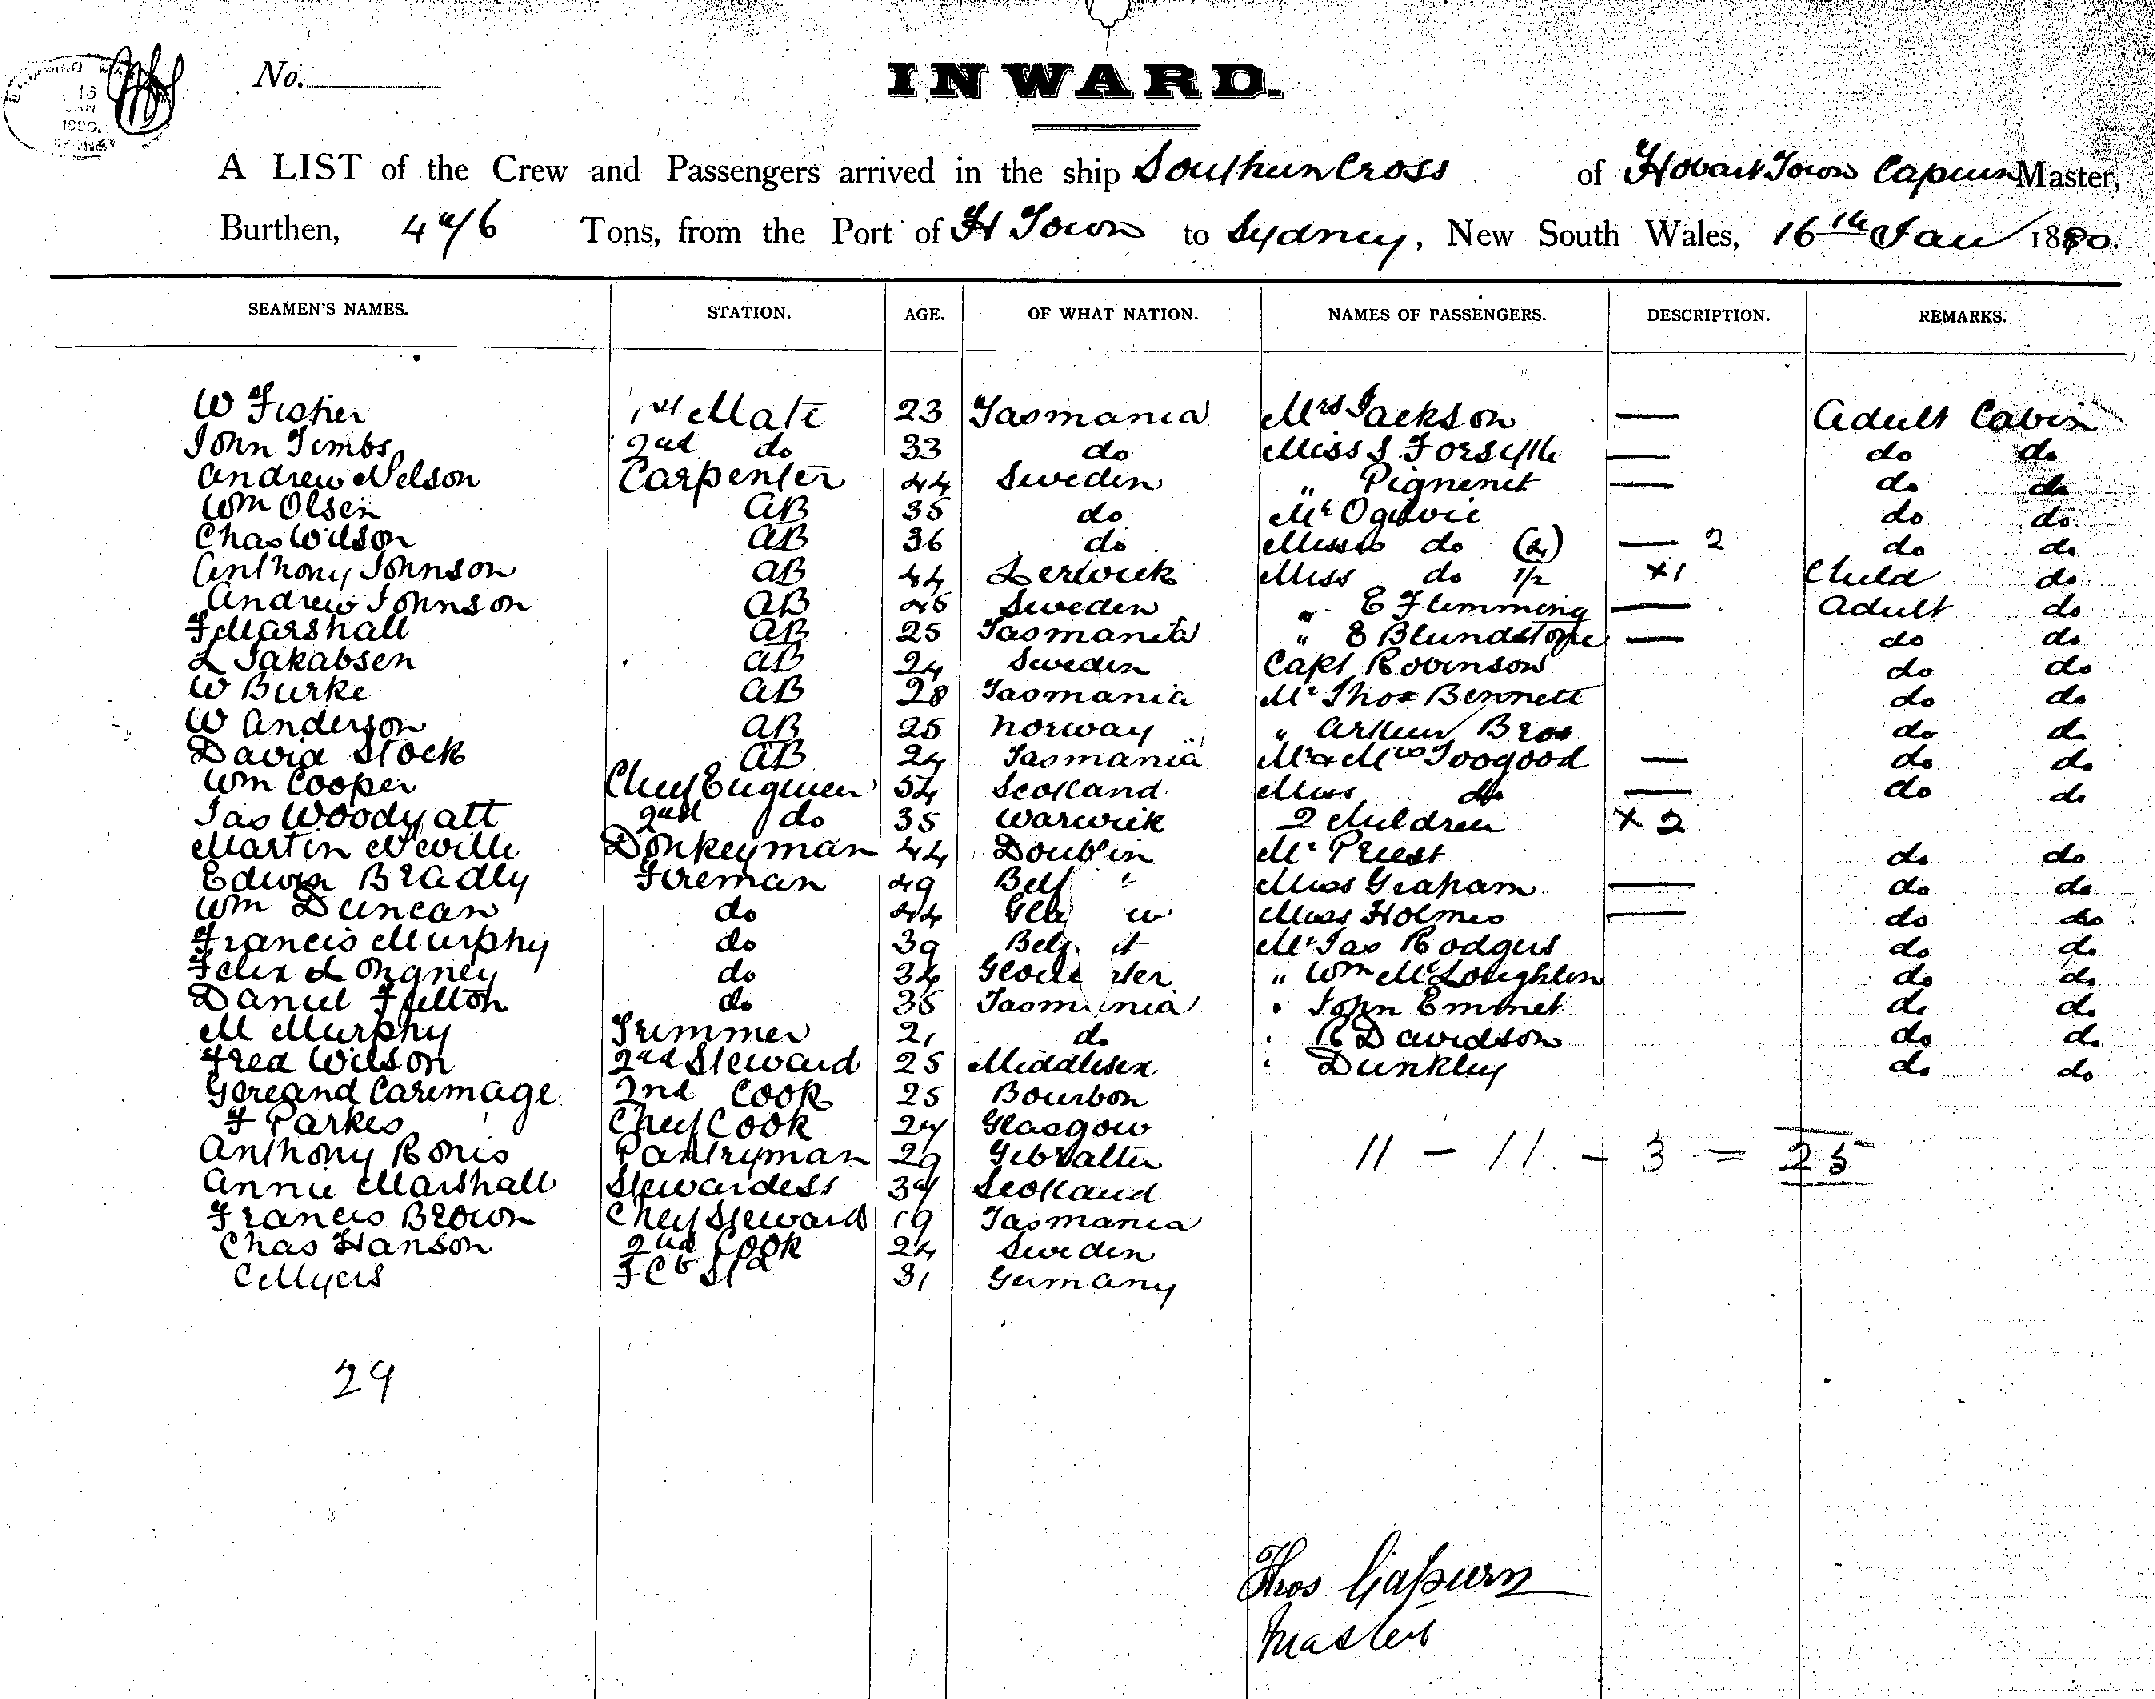 No.
INWARD.
A LIST of the Crew and Passengers arrived in the ship Southern Cross of Hobart Town Capurn Master,
Burthen, Tons, from the Port of H Town to Sydney, New South Wales, 16th Jan 1880.
SEAMEN'S NAMES. STATION. AGE. OF WHAT NATION. NAMES OF PASSENGERS. DESCRIPTION. REMARKS.
W Fisher 1st Mate 23 Tasmania Mrs Jackson — Adult Cabin
John Timbs 2nd do 33 do Miss S Forsyth — do do
Andrew Nelson Carpenter 44 Sweden " Pignenit — do do
Wm Olsen AB 35 do Mr Ogilvie do do
Chas Wilson AB 36 do Misses do (2) — 2 do do
Anthony Johnson AB 44 Lerwick Miss do 1/2 x1 Child do
Andrew Johnson AB 45 Sweden " E Flemming — Adult do
F Marshall AB 25 Tasmania " E Blundstone — do do
L Jakabsen AB 24 Sweden Capt Robinson do do
W Burke AB 28 Tasmania Mr Thos Bennett do do
W Anderson AB 25 Norway " Arthur Bros do do
David Stock AB 24 Tasmania Mr & Mrs Toogood — do do
Wm Cooper Chief Engineer 54 Scotland Miss do — do do
Jas Woodyatt 2nd do 35 Warwick 2 Children x 2
Martin Neville Donkeyman 44 Doublin Mr Priest do do
Edwin Bradly Fireman 49 Belf " Miss Graham — do do
Wm Duncan do 44 Gla w Miss Holmes — do do
Francis Murphy do 39 Belf t Mr Jas Rodgers do do
Felix Longney do 34 Glouc ster " Wm McLoughlin do do
Daniel Fulton do 35 Tasmania " John Emmet do do
M Murphy Trimmer 21 do " R Davidson do do
Fred Wilson 2nd Steward 25 Middlesex " Dunkley do do
Gereand Carimage 2nd Cook 25 Bourbon
F Parkes Chief Cook 27 Glasgow
Anthony Ronis Pantryman 29 Gibralter
Annie Marshall Stewardess 37 Scotland
Francis Brown Chief Steward 19 Tasmania
Chas Hanson 2nd Cook 24 Sweden
C Myers 31 Germany
11 - 11 - 3 = 25
29
Thos Capurn
Master